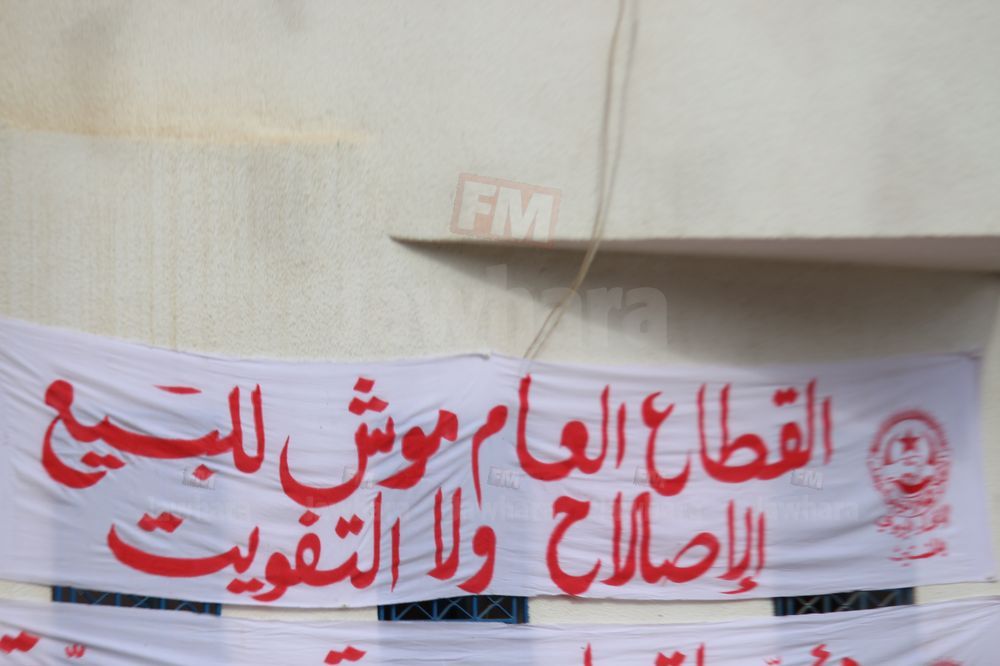 FM
Jawhara
القطاع العام موش للبيع
الإصلاح ولا التفويت